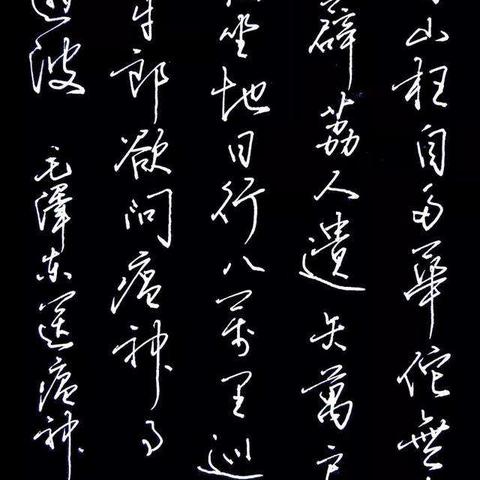 山枉自多華佗無
薜荔人遺矢萬戶
坐地日行八萬里巡
牛郎欲問瘟神事
逝波 毛澤東送瘟神